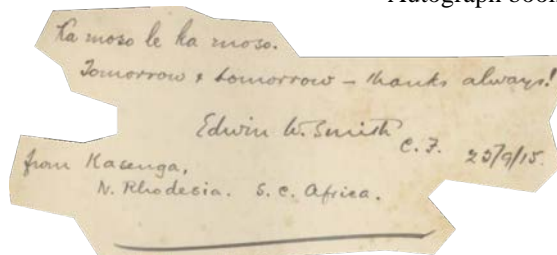 Autograph book
Ka moso le ka moso.
Tomorrow & tomorrow – thanks always!
Edwin W. Smith
C. F. 25/9/15.
from Kasenga,
N. Rhodesia. S. C. Africa.